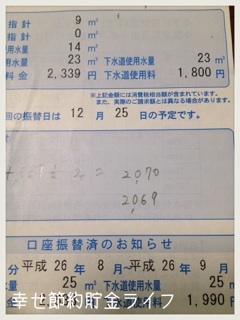 指針 9 m³
指針 0 m³
用水量 14 m³
用水量 23 m³ 下水道使用水量 23 m³
料金 2,339 円 下水道使用料 1,800 円
※上記金額には消費税相当額が含まれています。
また、実際のご請求額とは異なる場合があります。
回の振替日は 12 月 25 日の予定です。
2,070
2,069
口座振替済のお知らせ
分 平成 26 年 8 月~平成 26 年 9 月
量 25 m³ 下水道使用水量 25 m³
1,990 円
幸せ節約貯金ライフ